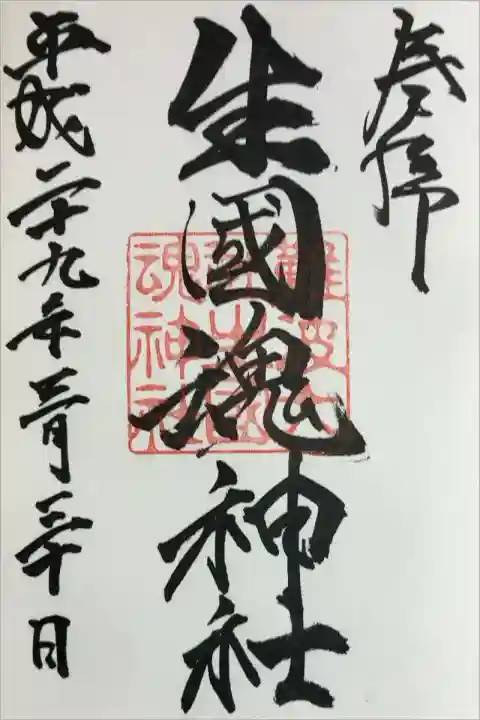 奉拝
生國魂神社
難波大
社生國
魂神社
平成二十九年三月三十日